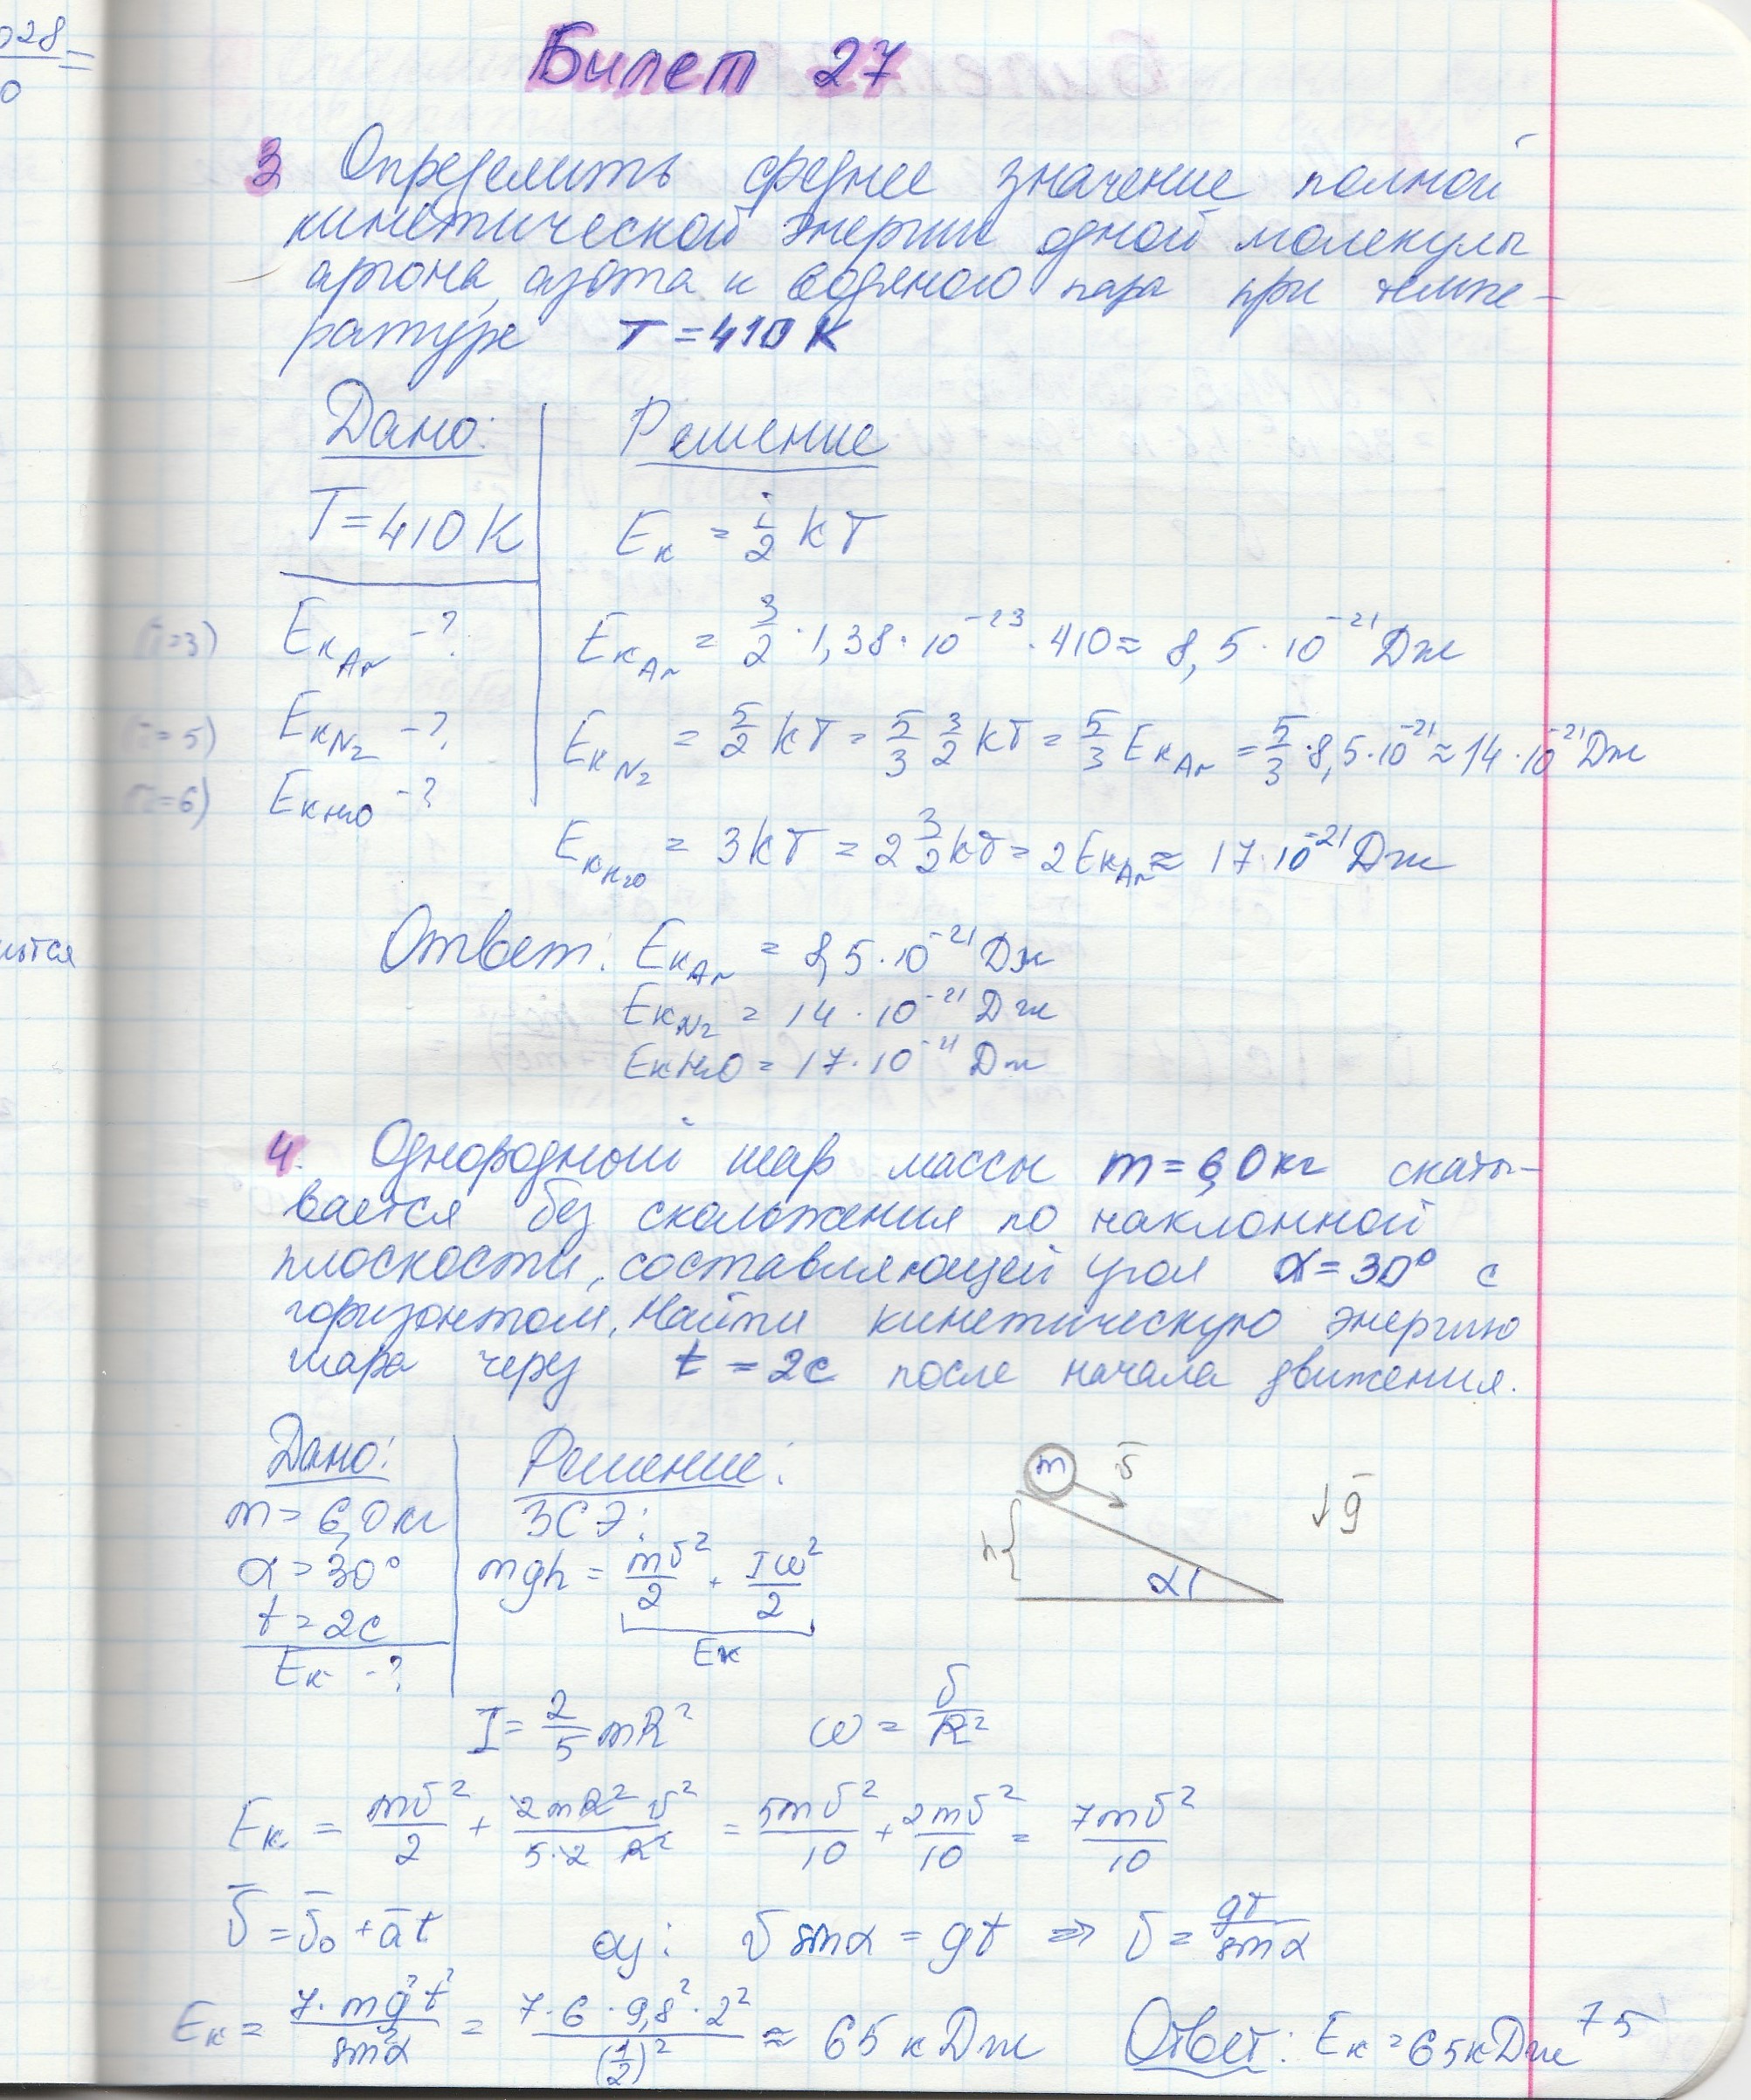 028
=
0
Билет 27
3 Определить среднее значение полной
кинетической энергии одной молекулы
аргона, азота и водяного пара при темпе-
ратуре T = 410 K
Дано: Решение
T = 410 K Eк = i/2 kT
(i=3) EкAr -? EкAr = 3/2 · 1,38 · 10⁻²³ · 410 ≈ 8,5 · 10⁻²¹ Дж
(i=5) EкN₂ -? EкN₂ = 5/2 kT = 5/3 3/2 kT = 5/3 EкAr = 5/3 · 8,5 · 10⁻²¹ ≈ 14 · 10⁻²¹ Дж
(i=6) EкH₂O -?
EкH₂O = 3kT = 2 3/2 kT = 2EкAr ≈ 17 · 10⁻²¹ Дж
Ответ: EкAr = 8,5 · 10⁻²¹ Дж
EкN₂ = 14 · 10⁻²¹ Дж
EкH₂O = 17 · 10⁻²¹ Дж
4. Однородный шар массы m = 6,0 кг скаты-
вается без скольжения по наклонной
плоскости, составляющей угол α = 30° с
горизонтом. Найти кинетическую энергию
шара через t = 2с после начала движения.
Дано: Решение:
m = 6,0 кг ЗСЭ:
α = 30° mgh = mυ²/2 + Iω²/2
t = 2с
Eк -? Eк
m ῡ ↓ḡ
h α
I = 2/5 mR² ω = υ/R²
Eк = mυ²/2 + 2mR² υ²/5·2 R² = 5mυ²/10 + 2mυ²/10 = 7mυ²/10
ῡ = ῡ₀ + āt oy: υ sinα = gt ⇒ υ = gt/sinα
Eк = 7·mg²t²/sin²α = 7·6·9,8²·2²/(1/2)² ≈ 65 кДж Ответ: Eк = 65 кДж
75